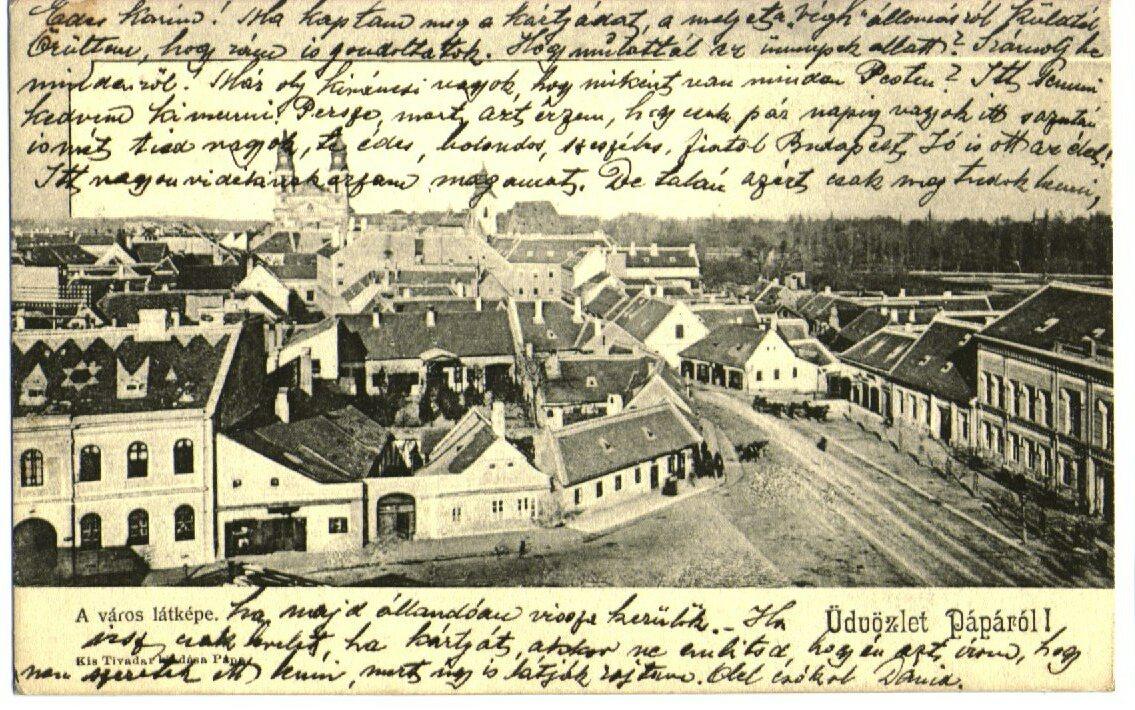 Édes Karim! Ma kaptam meg a kártyádat, a melyet a végh állomásról küldtél
Örültem, hogy rám is gondoltatok. Hogy mulattál az ünnepek alatt? Számolj be
mindenről! Már oly kiváncsi vagyok, hogy miként van minden Pesten? Itt semmi
kedvem kimenni. Persze, mert azt érzem, hogy csak pár napig vagyok itt s azután
ismét tied vagyok, te édes, bolondos, szeszélyes, fiatal Budapest. Jó is ott az élet!
Itt nagyon vidékinek érzem magamat. De talán azért csak meg tudok lenni,
A város látképe. ha majd állandóan vissza kerülök. - Ha
Üdvözlet Pápáról!
irsz csak levelet, ha kártyát, akkor ne emlitsd, hogy én azt irom, hogy
Kis Tivadar kiadása Pápa
nem szeretek itt lenni, mert úgy is látják rajtam. Ölel csókol Dania.